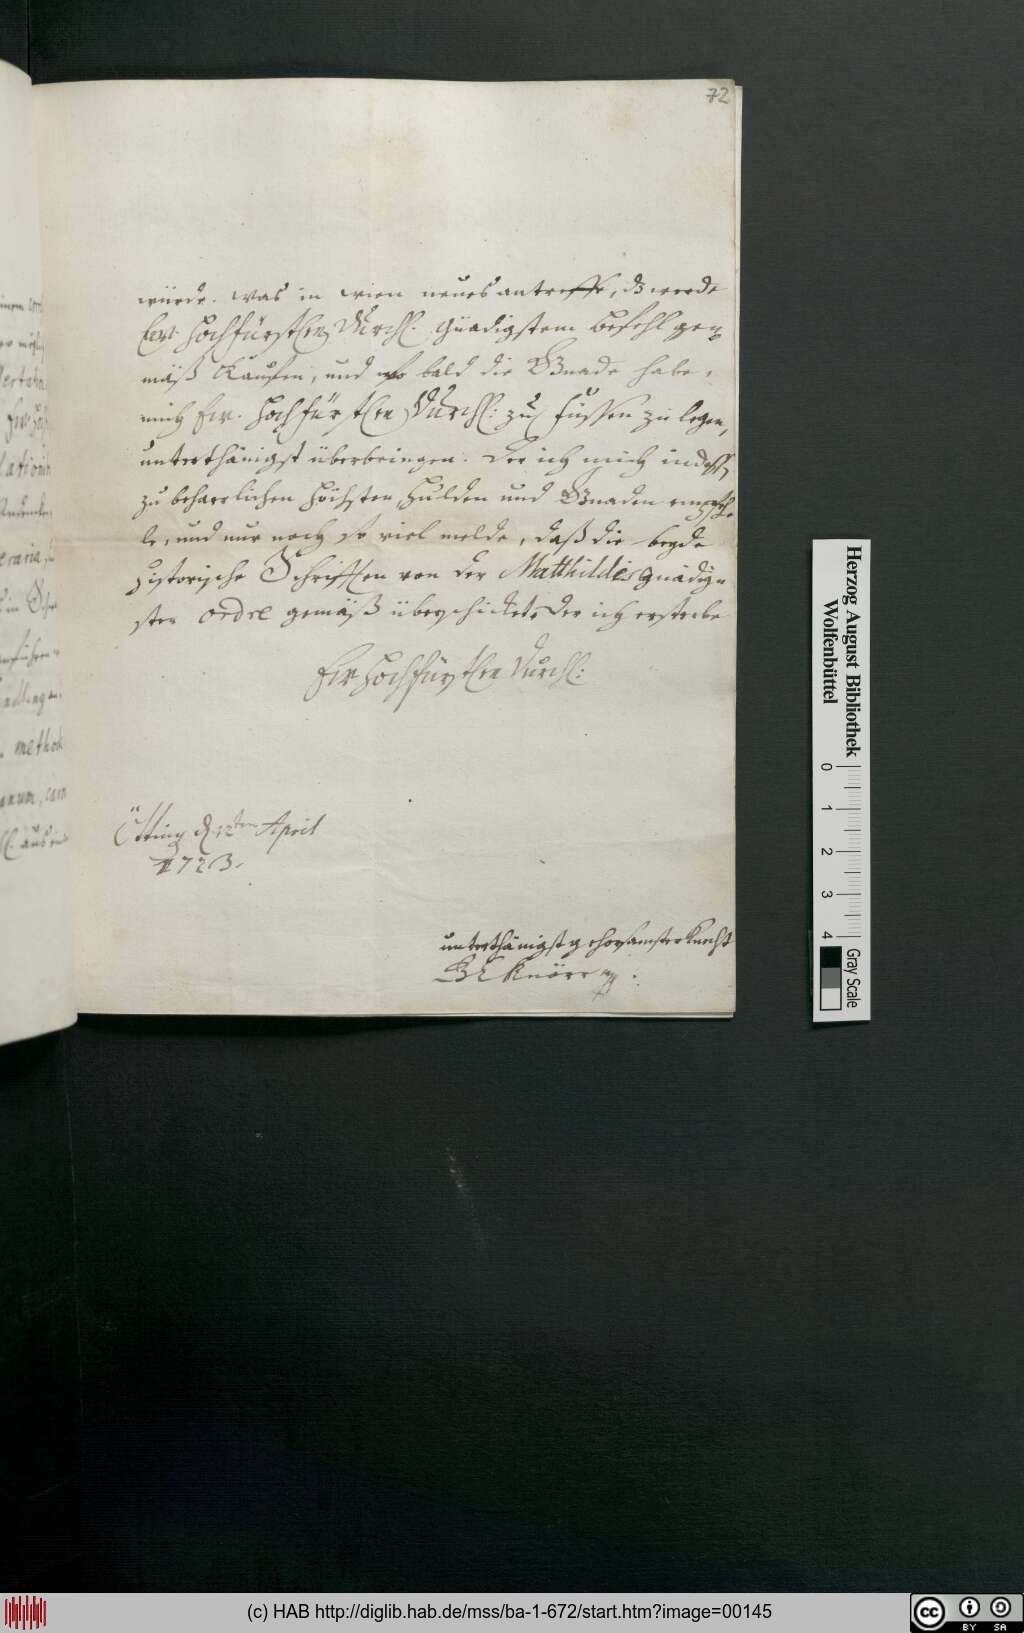 72
würde. was in wien neues antreffe, dz werde
Ew. Hochfürstlen Durchl. gnädigstem befehl gem
mäß Kauffen, und so bald die Gnade habe,
mich Ew. Hochfürstlen Durchl: zu füssen zu legen,
unterthänigst überbringen. Der ich mich indeßen
zu beharrlichen höchsten Hulden und Gnaden empfeh
le, und nur noch so viel melde, daß die beyde
historische Schrifften von der Matthildis gnädig
ster ordre gemäß überschicket, der ich ersterbe
Ew Hochfürstlen Durchl:
Ötting d. 12ten April
1723.
unterthänigst gehorsamster Knecht
Knörr
Herzog August Bibliothek
Wolfenbüttel
0 1 2 3 4
Gray Scale
(c) HAB http://diglib.hab.de/mss/ba-1-672/start.htm?image=00145
cc BY SA